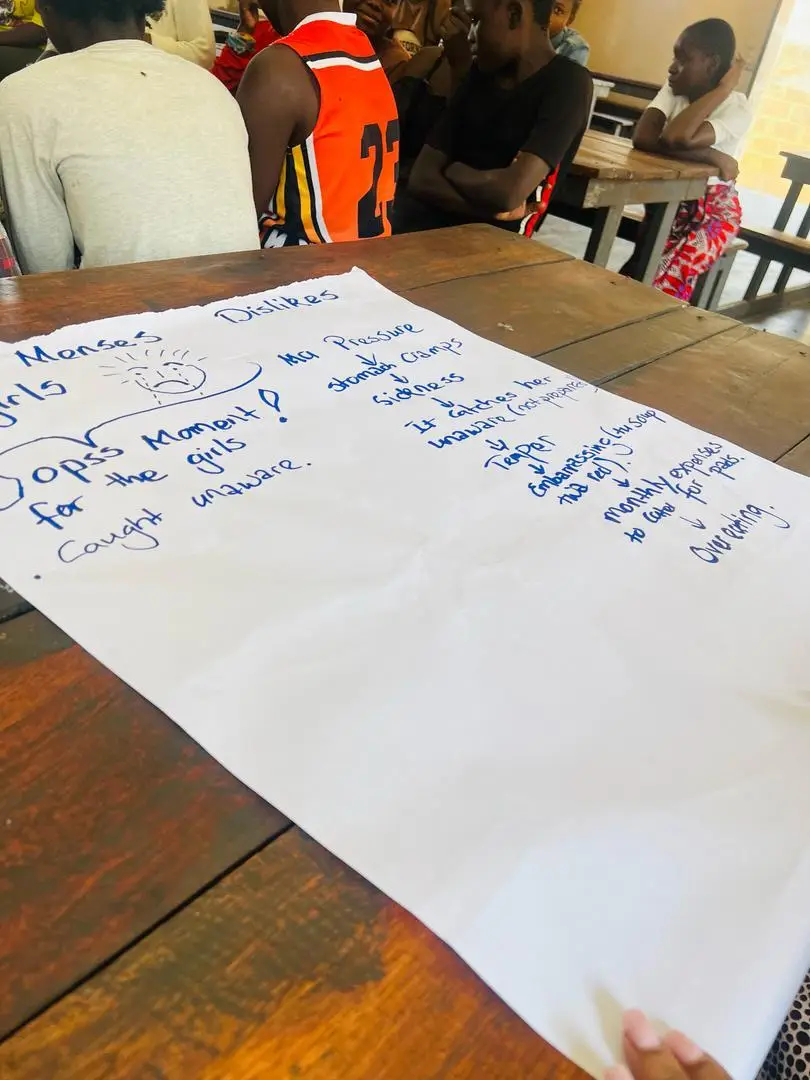 Menses
girls
opss Moment!
for the girls
. Caught unaware.
Dislikes
Ma Pressure
stomach Cramps
Sickness
It catches her
unaware (not prepared)
Temper
Embarrassing (tu soup
twa red).
Monthly expenses
to cater for pads.
Over eating.
23